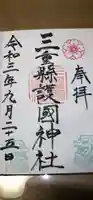 奉拝
三重縣護國神社
令和三年九月二十五日